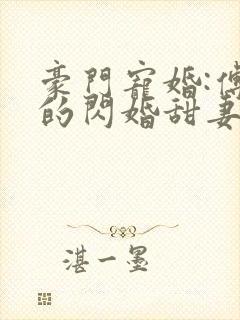 豪門寵婚:傅
的閃婚甜妻
湛一墨